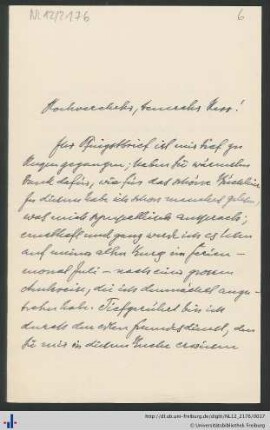 NL12/2176
6
Hochverehrter, teurer Herr!
Ihr Pfingstbrief ist mir tief zu
Herzen gegangen; haben Sie wärmsten
Dank dafür, wie für das schöne Büchlein.
In diesem habe ich schon manches gelesen,
was mich sympathisch ansprach;
ernsthaft und ganz werde ich es lesen
auf meiner alten Burg im Ferien-
monat Juli – nach einer grossen
die ich demnächst ange-
treten habe. Tiefgerührt bin ich
durch den Freundesdienst, den
Sie mir in diesem Buche
http://dl.ub.uni-freiburg.de/diglit/NL12_2176/0037
© Universitätsbibliothek Freiburg